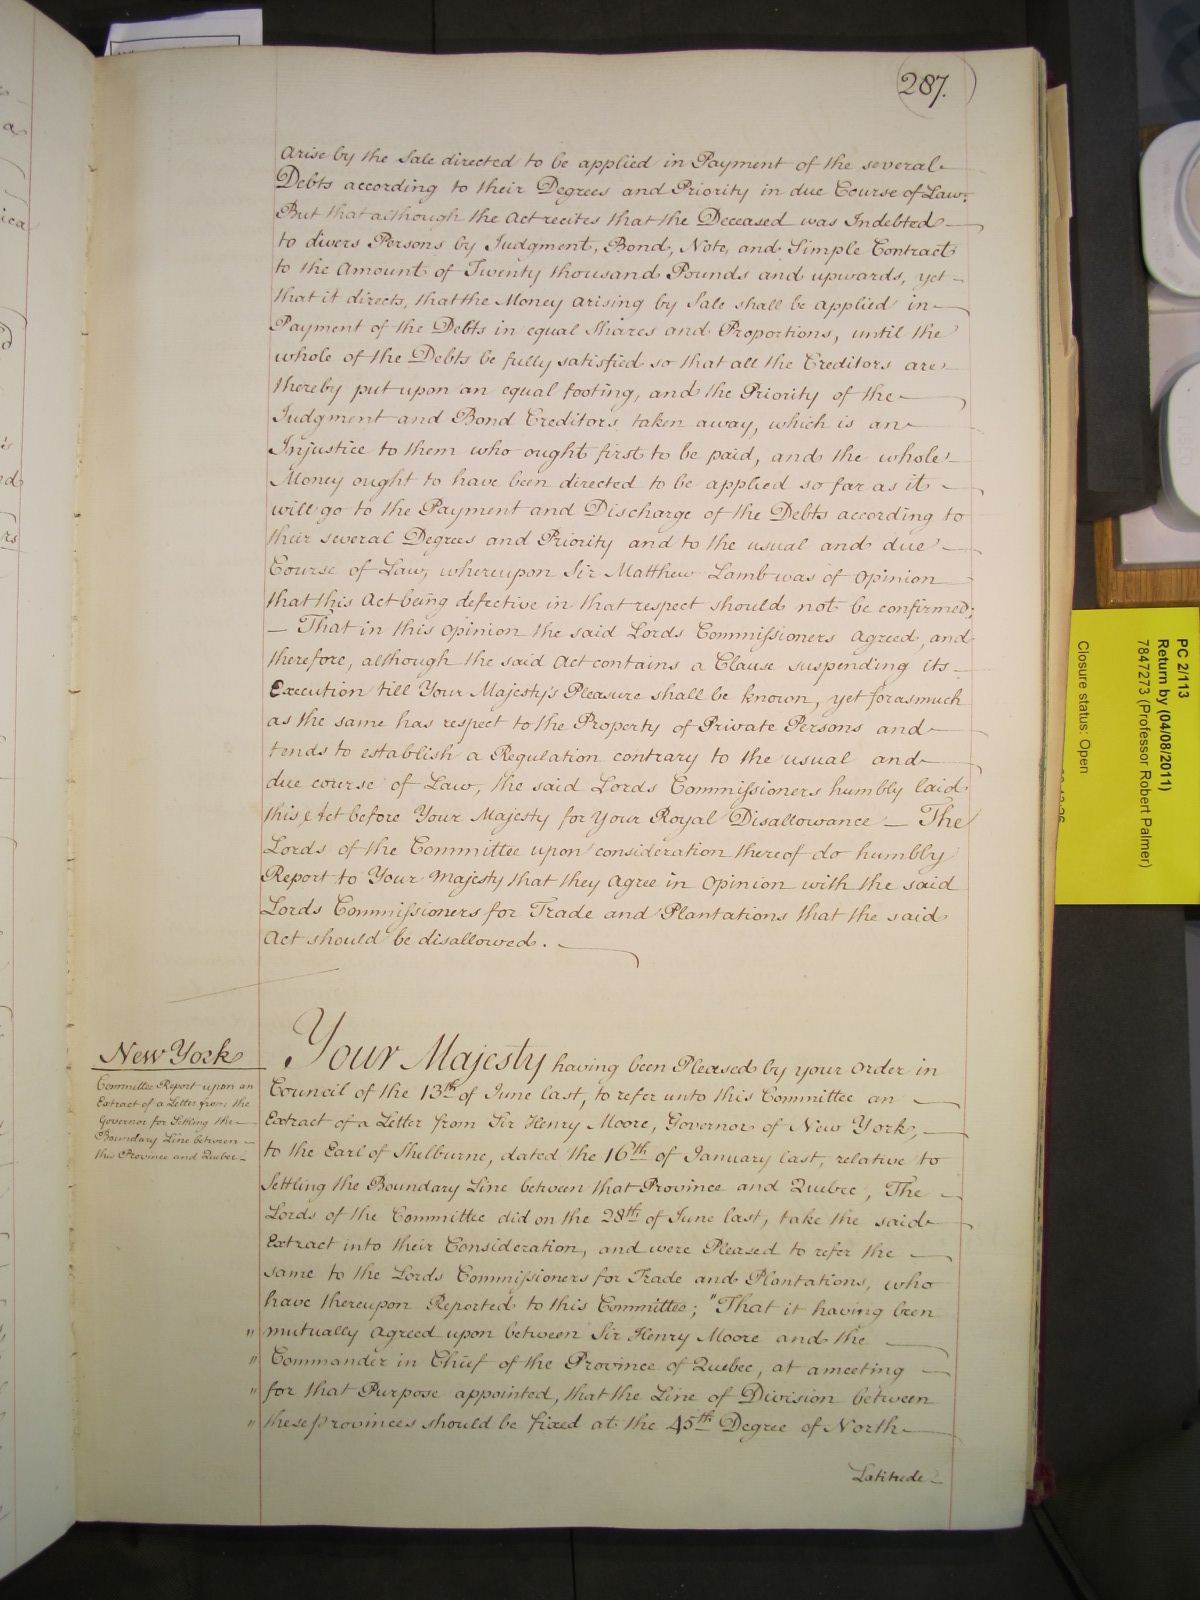 287.
arise by the Sale directed to be applied in Payment of the several
Debts according to their Degrees and Priority in due Course of Law;
But that although the Act recites that the Deceased was Indebted
to divers Persons by Judgment, Bond, Note, and Simple Contract
to the Amount of Twenty thousand Pounds and upwards, yet
that it directs, that the Money arising by Sale shall be applied in
Payment of the Debts in equal Shares and Proportions, until the
whole of the Debts be fully satisfied so that all the Creditors are
thereby put upon an equal footing, and the Priority of the
Judgment and Bond Creditors taken away, which is an
Injustice to them who ought first to be paid, and the whole
Money ought to have been directed to be applied so far as it
will go to the Payment and Discharge of the Debts according to
their several Degrees and Priority and to the usual and due
Course of Law, whereupon Sir Matthew Lamb was of opinion
that this Act being defective in that respect should not be confirmed;
— That in this opinion the said Lords Commissioners agreed, and
therefore, although the said Act contains a Clause suspending its
Execution till Your Majesty's Pleasure shall be known, yet forasmuch
as the same has respect to the Property of Private Persons and
tends to establish a Regulation contrary to the usual and
due course of Law, the said Lords Commissioners humbly laid
this Act before Your Majesty for Your Royal Disallowance — The
Lords of the Committee upon consideration thereof do humbly
Report to Your Majesty that they agree in Opinion with the said
Lords Commissioners for Trade and Plantations that the said
Act should be disallowed.
New York
Committee Report upon an
Extract of a Letter from the
Governor for Settling the
Boundary Line between
this Province and Quebec
Your Majesty having been Pleased by your Order in
Council of the 13th of June last, to refer unto this Committee an
Extract of a Letter from Sir Henry Moore, Governor of New York,
to the Earl of Shelburne, dated the 16th of January last, relative to
Settling the Boundary Line between that Province and Quebec, The
Lords of the Committee did on the 28th of June last, take the said
Extract into their Consideration, and were Pleased to refer the
same to the Lords Commissioners for Trade and Plantations, who
have thereupon Reported to this Committee; "That it having been
" mutually agreed upon between Sir Henry Moore and the
" Commander in Chief of the Province of Quebec, at a meeting
" for that Purpose appointed, that the Line of Division between
" these Provinces should be fixed at the 45th Degree of North
Latitude
PC 2/113
Return by (04/08/2011)
7847273 (Professor Robert Palmer)
Closure status: Open